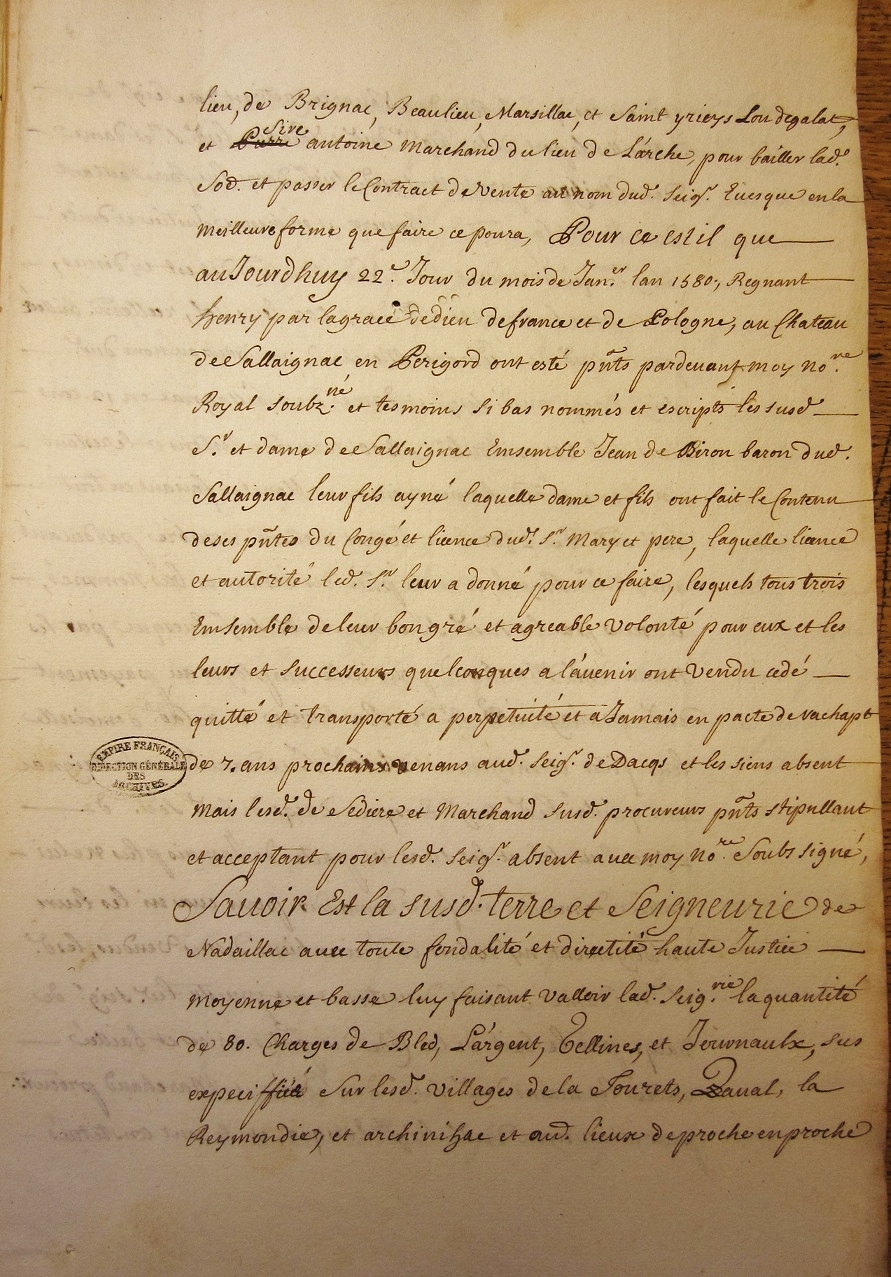 lieu, de Brignac, Beaulieu, Marsillac, et Saint yrieys Lou degalat,
et Pierre Sire antoine Marchand du lieu de L'arche, pour bailler lad.
Sod. et passer le Contract de Vente au nom dud. Seigr. Euesque en la
meilleure forme que faire ce poura, Pour ce est il que
au Jourdhuy 22e. Jour du mois de Janer. lan 1580, Regnant
henry par la grace de dieu de france et de Pologne, au Chateau
de Sallaignac en Perigord ont esté pñts pardeuant moy nore.
Royal soubzné. et tesmoins si bas nommés et escripts les susd.
Sr. et dame de Sallaignac Ensemble Jean de Biron baron dud.
Sallaignac leur fils ayné laquelle dame et fils ont fait le Contenu
deses pñtes du Congé et licence dud. Sr. Mary et pere, laquelle licence
et autorité led. Sr. leur a donné pour ce faire, lesquels tous trois
Ensemble de leur bongré et agreable volonté pour eux et les
leurs et successeurs quelconques a l'auenir ont Vendu cedé
quitté et transporté a perpetuité et a Jamais en pacte de rachapt
EMPIRE FRANÇAIS
DIRECTION GÉNÉRALE
DES
ARCHIVES
de 7. ans prochains uenans aud. Seigr. de Dacqs et les siens absent
mais lesd. de Sediere et Marchand susd. procureurs pñts stipullant
et acceptant pour lesd. Seigr. absent auec moy nore. Soubs signé,
Sauoir Est la susd. terre et Seigneurie de
Nadaillac auec toute fondalité et directité haute Justice
moyenne et basse luy faisant valloir lad. Seigrie. la quantité
de 80. Charges de Bled, L'argent, Gellines, et Journaulx, sus
expeciffiée Sur lesd. Villages de la Tourets, Daual, la
Reymondie, et archinihac et aud. lieux de proche en proche